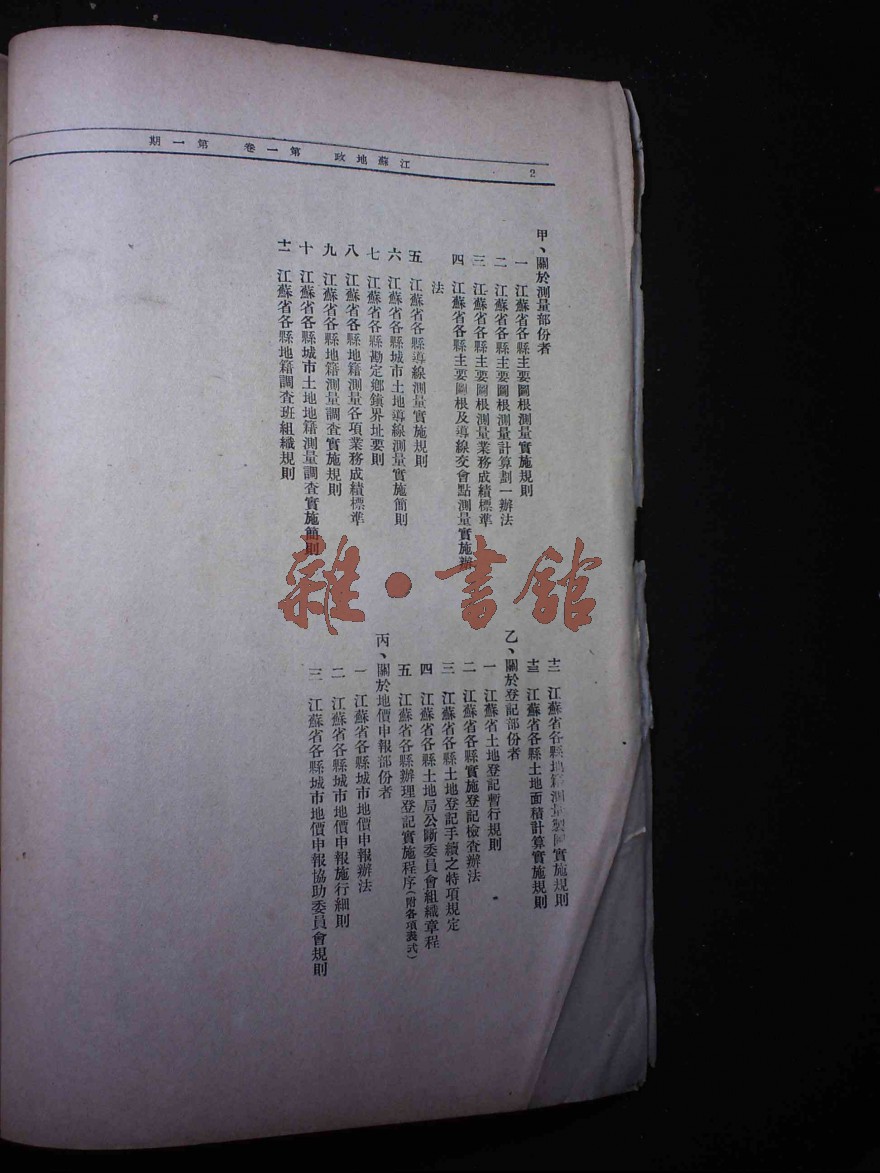 江蘇地政 第一卷 第一期
2
甲、關於測量部份者
一 江蘇省各縣主要圖根測量實施規則
二 江蘇省各縣主要圖根測量計算劃一辦法
三 江蘇省各縣主要圖根測量業務成績標準
四 江蘇省各縣主要圖根及導線交會點測量實施辦
法
五 江蘇省各縣導線測量實施規則
六 江蘇省各縣城市土地導線測量實施簡則
七 江蘇省各縣勘定鄉鎮界址要則
八 江蘇省各縣地籍測量各項業務成績標準
九 江蘇省各縣地籍測量調查實施規則
十 江蘇省各縣城市土地地籍測量調查實施簡則
十一 江蘇省各縣地籍調查班組織規則
十二 江蘇省各縣地籍測量製圖實施規則
十三 江蘇省各縣土地面積計算實施規則
乙、關於登記部份者
一 江蘇省土地登記暫行規則
二 江蘇省各縣實施登記檢查辦法
三 江蘇省各縣土地登記手續之特項規定
四 江蘇省各縣土地局公斷委員會組織章程
五 江蘇省各縣辦理登記實施程序(附各項表式)
丙、關於地價申報部份者
一 江蘇省各縣城市地價申報辦法
二 江蘇省各縣城市地價申報施行細則
三 江蘇省各縣城市地價申報協助委員會規則
雜·書館